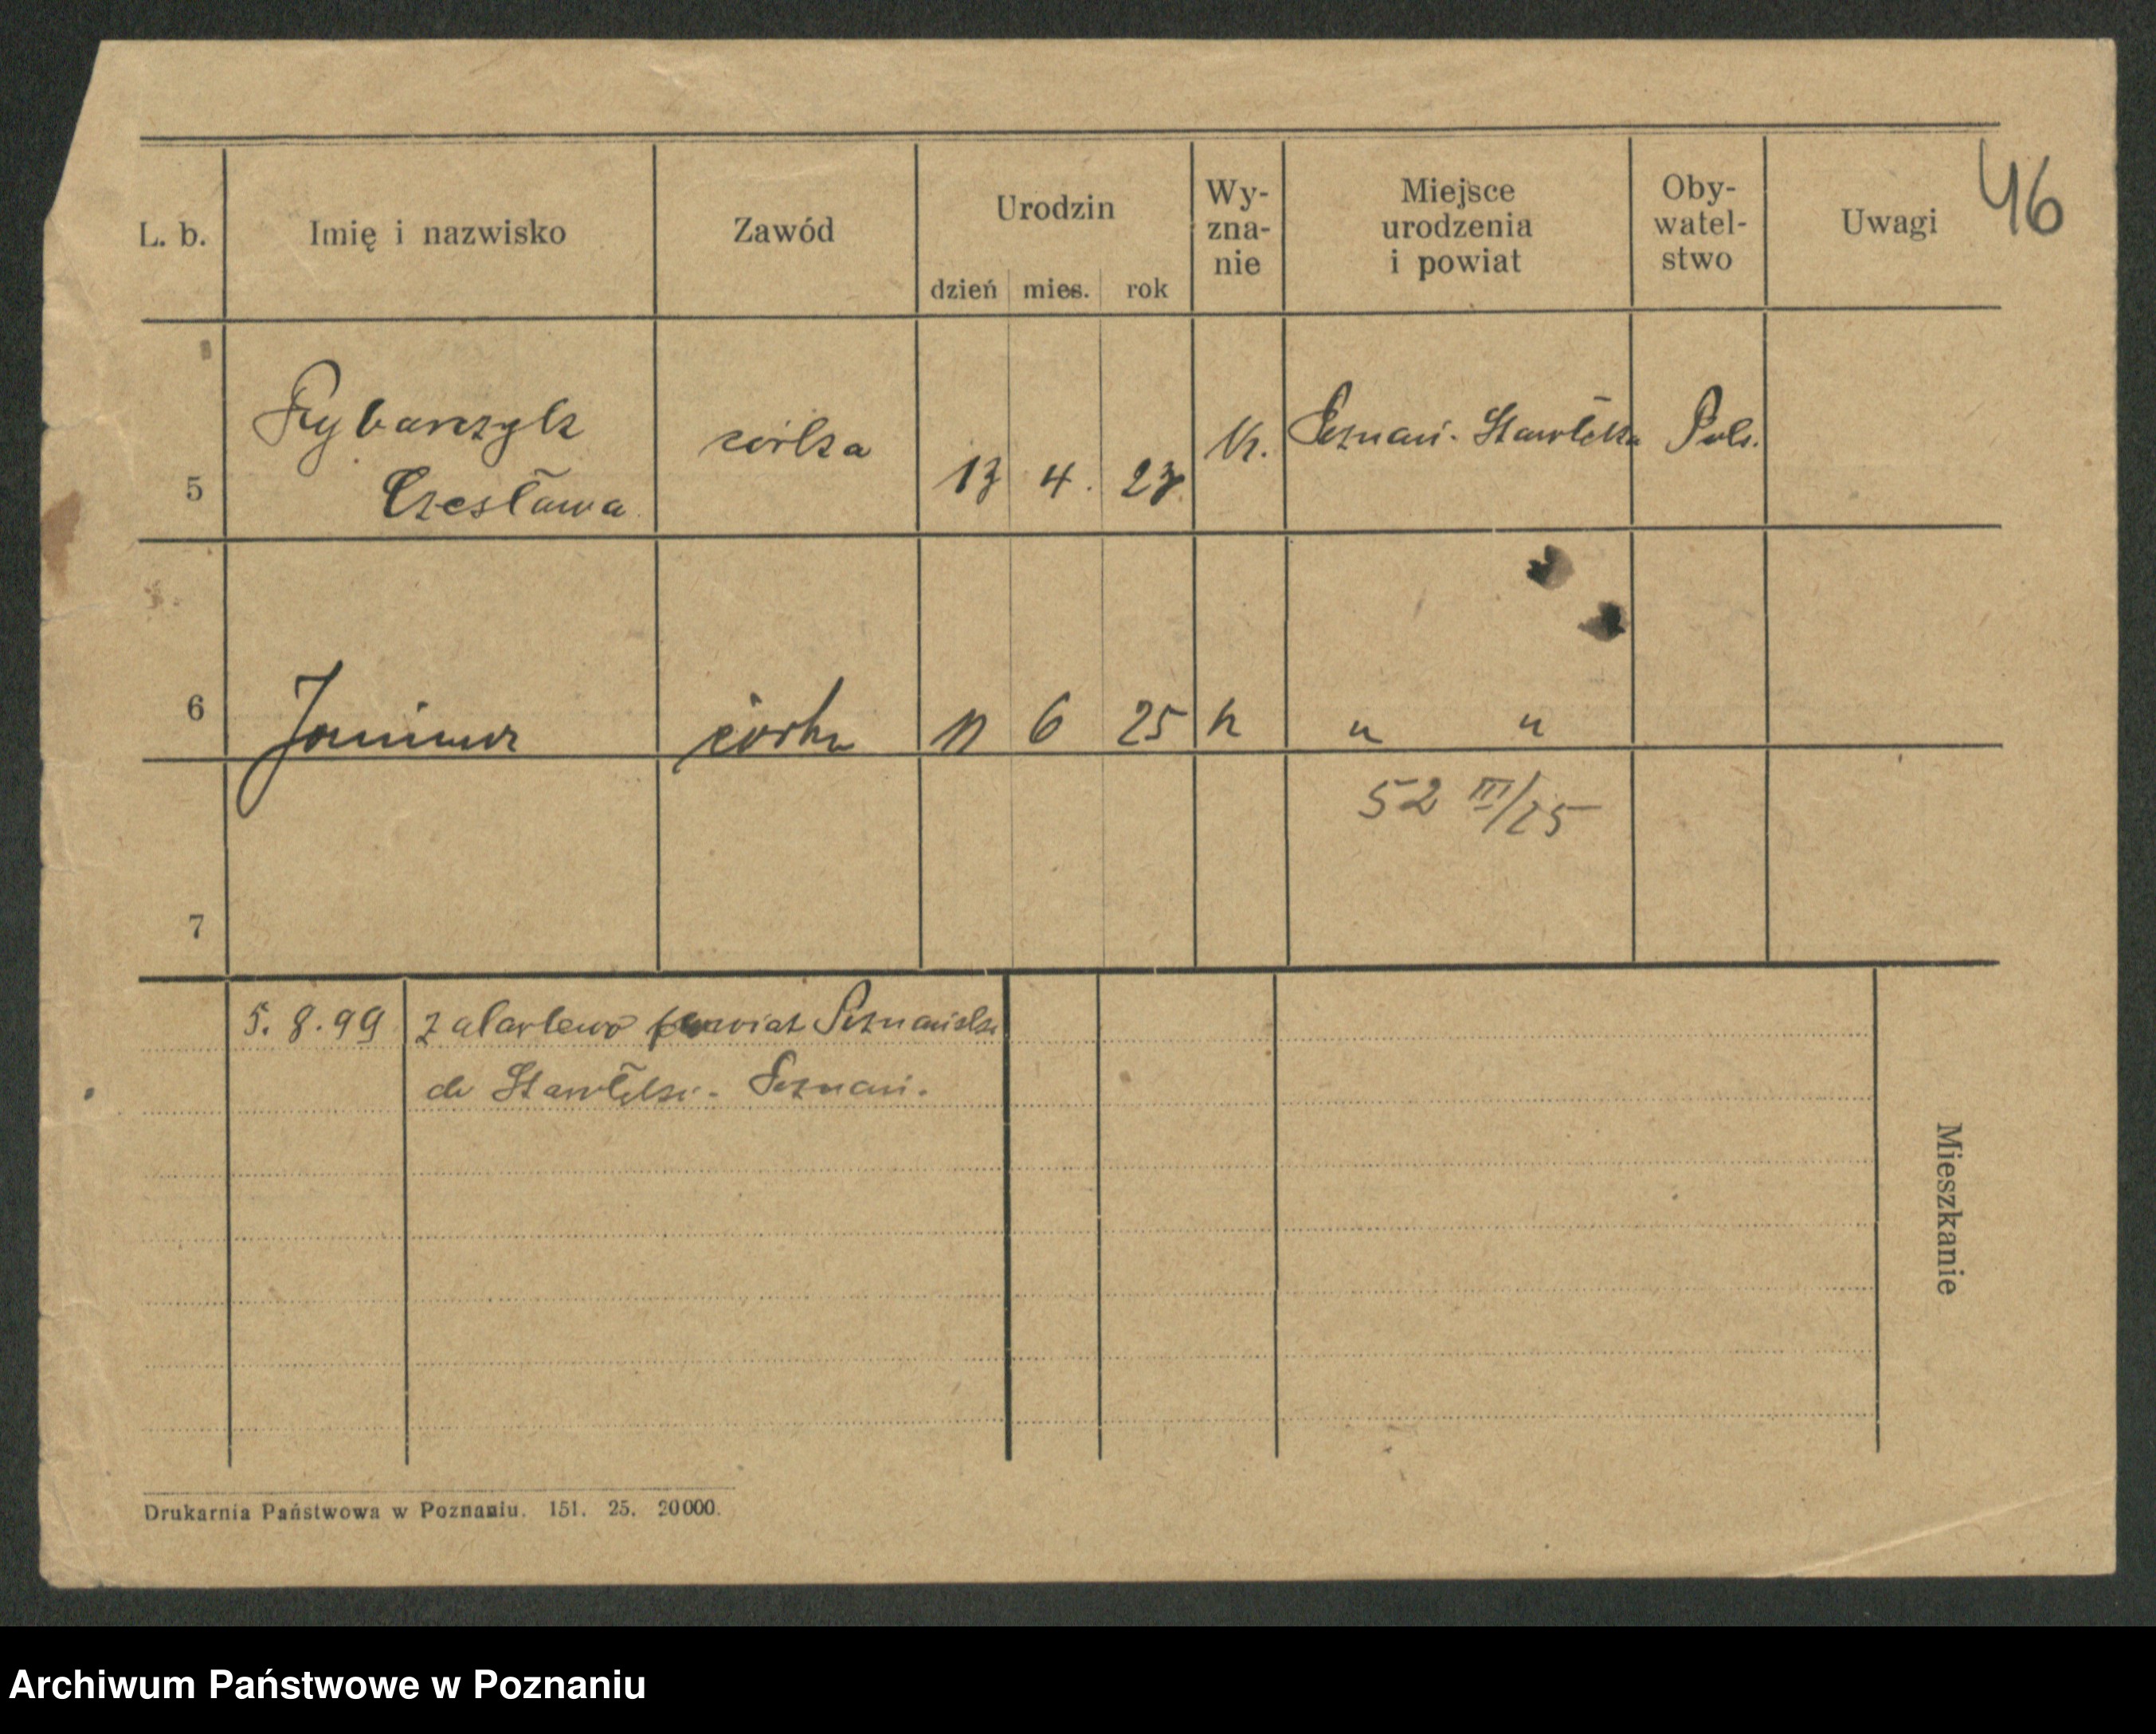 46
L. b.
Imię i nazwisko
Zawód
Urodzin
dzień mies. rok
Wy-
zna-
nie
Miejsce
urodzenia
i powiat
Oby-
watel-
stwo
Uwagi
5 Rybarczyk córka 13 4. 23 K. Poznań-Starołęka Pols.
Czesława
6 Janina córka 11 6 25 k " "
52 III/25
7
5. 8. 99 powiat Poznański
do Starołęki - Poznań.
Mieszkanie
Drukarnia Państwowa w Poznaniu. 151. 25. 20000.
Archiwum Państwowe w Poznaniu